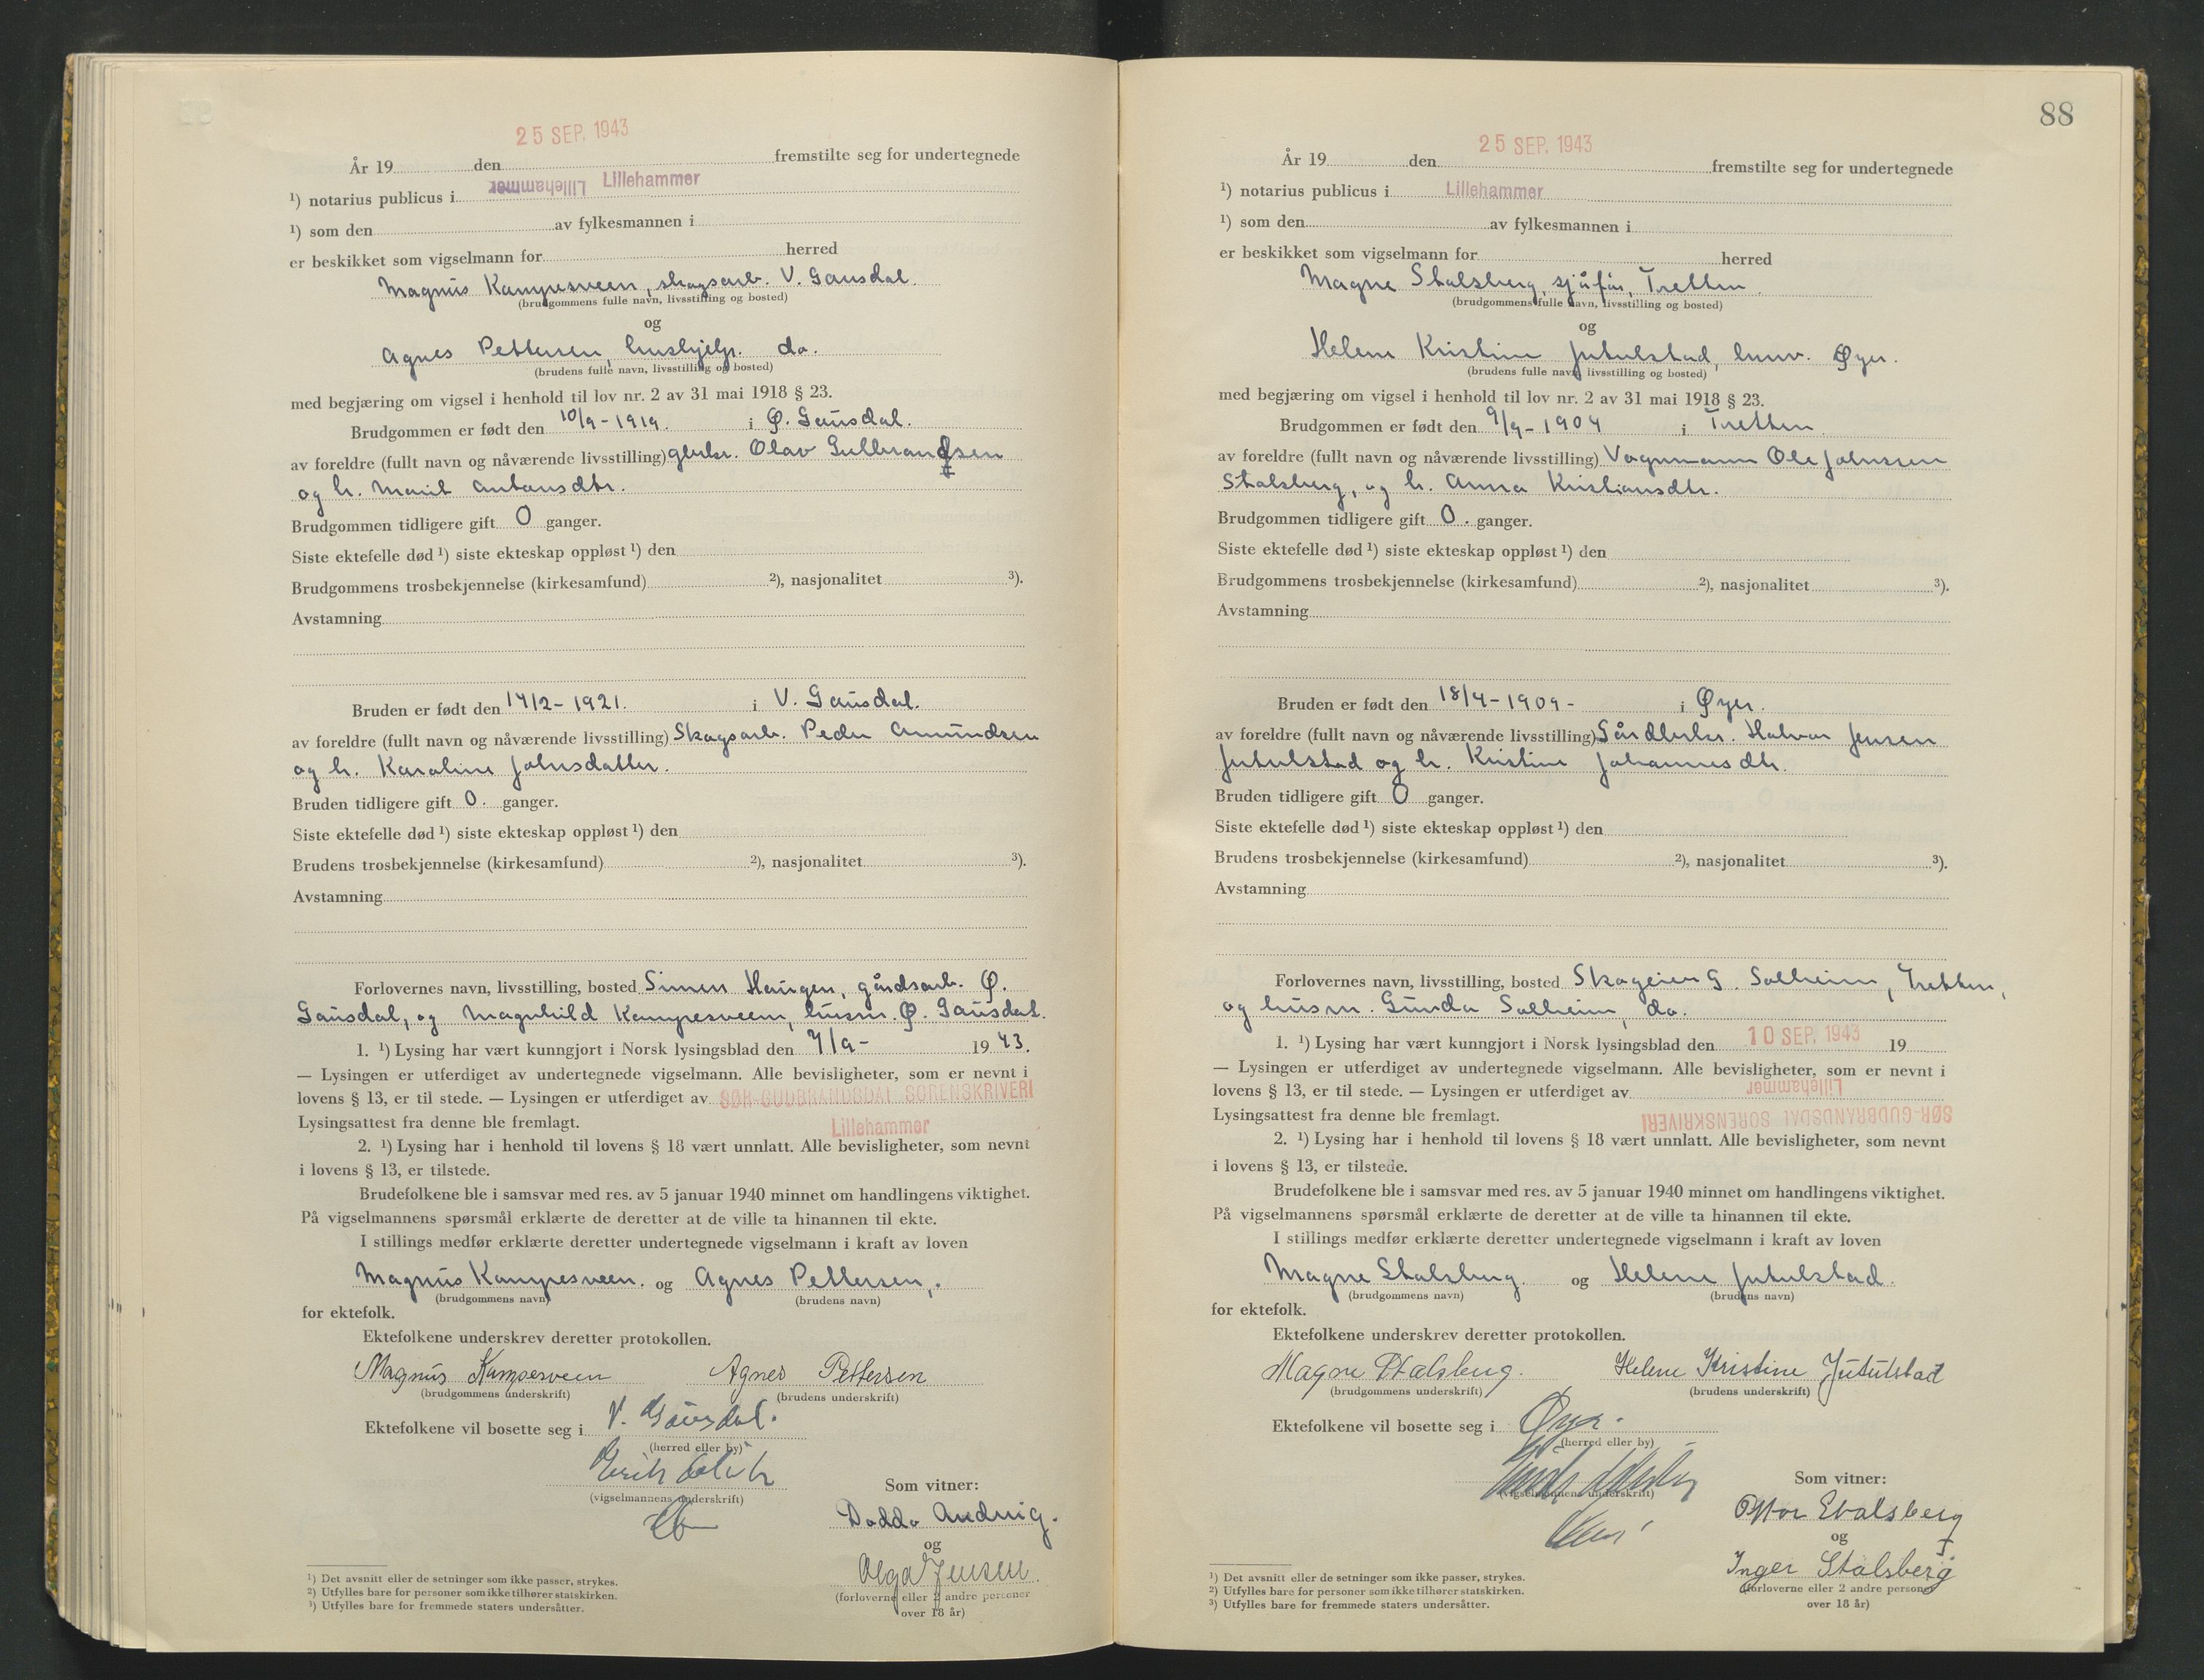 25 SEP. 1943
År 19 den fremstilte seg for undertegnede
¹) notarius publicus i Lillehammer Lillehammer
¹) som den av fylkesmannen i
er beskikket som vigselmann for herred
Magnus Kampesveen, skogsarb. V. Gausdal.
(brudgommens fulle navn, livsstilling og bosted)
og
Agnes Pettersen, hushjelp. do.
(brudens fulle navn, livsstilling og bosted)
med begjæring om vigsel i henhold til lov nr. 2 av 31 mai 1918 § 23.
Brudgommen er født den 10/9-1919. i Ø. Gausdal.
av foreldre (fullt navn og nåværende livsstilling) gbrkr. Olav Gulbrandsen
og h. Marit Antonsdtr.
Brudgommen tidligere gift 0 ganger.
Siste ektefelle død ¹) siste ekteskap oppløst ¹) den
Brudgommens trosbekjennelse (kirkesamfund) ²), nasjonalitet ³).
Avstamning
Bruden er født den 14/2-1921. i V. Gausdal.
av foreldre (fullt navn og nåværende livsstilling) Skogsarb. Peder Amundsen
og h. Karoline Johnsdatter.
Bruden tidligere gift 0. ganger.
Siste ektefelle død ¹) siste ekteskap oppløst ¹) den
Brudens trosbekjennelse (kirkesamfund) ²), nasjonalitet ³).
Avstamning
Forlovernes navn, livsstilling, bosted Simen Haugen, gårdsarb. Ø.
Gausdal, og Magnhild Kampesveen, husm. Ø. Gausdal.
1. ¹) Lysing har vært kunngjort i Norsk lysingsblad den 7/9- 1943.
— Lysingen er utferdiget av undertegnede vigselmann. Alle bevisligheter, som er nevnt i
lovens § 13, er til stede. — Lysingen er utferdiget av SØR-GUDBRANDSDAL SORENSKRIVERI
Lysingsattest fra denne ble fremlagt. Lillehammer
2. ¹) Lysing har i henhold til lovens § 18 vært unnlatt. Alle bevisligheter, som nevnt
i lovens § 13, er tilstede.
Brudefolkene ble i samsvar med res. av 5 januar 1940 minnet om handlingens viktighet.
På vigselmannens spørsmål erklærte de deretter at de ville ta hinannen til ekte.
I stillings medfør erklærte deretter undertegnede vigselmann i kraft av loven
Magnus Kampesveen. og Agnes Pettersen,.
(brudgommens navn) (brudens navn)
for ektefolk.
Ektefolkene underskrev deretter protokollen.
Magnus Kampesveen Agnes Pettersen
(brudgommens underskrift) (brudens underskrift)
Ektefolkene vil bosette seg i V. Gausdal.
(herred eller by)
(vigselmannens underskrift)
Som vitner:
Dodda
og
Olga Jensen.
(forloverne eller 2 andre personer
over 18 år)
¹) Det avsnitt eller de setninger som ikke passer, strykes.
²) Utfylles bare for personer som ikke tilhører statskirken.
³) Utfylles bare for fremmede staters undersåtter.
88
25 SEP. 1943
År 19 den fremstilte seg for undertegnede
¹) notarius publicus i Lillehammer
¹) som den av fylkesmannen i
er beskikket som vigselmann for herred
Magne Stalsberg, sjåfør, Tretten.
(brudgommens fulle navn, livsstilling og bosted)
og
Helene Kristine Jutulstad, Øyer.
(brudens fulle navn, livsstilling og bosted)
med begjæring om vigsel i henhold til lov nr. 2 av 31 mai 1918 § 23.
Brudgommen er født den 9/9-1904 i Tretten.
av foreldre (fullt navn og nåværende livsstilling) Vognmann Ole Johnsen
Stalsberg, og h. Anna Kristiansdtr.
Brudgommen tidligere gift 0. ganger.
Siste ektefelle død ¹) siste ekteskap oppløst ¹) den
Brudgommens trosbekjennelse (kirkesamfund) ²), nasjonalitet ³).
Avstamning
Bruden er født den 18/4-1909- i Øyer.
av foreldre (fullt navn og nåværende livsstilling) Gårdbrkr. Halvor Jensen
Jutulstad og h. Kristine Johannesdtr.
Bruden tidligere gift 0 ganger.
Siste ektefelle død ¹) siste ekteskap oppløst ¹) den
Brudens trosbekjennelse (kirkesamfund) ²), nasjonalitet ³).
Avstamning
Forlovernes navn, livsstilling, bosted Skogeier G. Solheim, Tretten,
og husm. Gunda Solheim, do.
1. ¹) Lysing har vært kunngjort i Norsk lysingsblad den 10 SEP. 1943 19
— Lysingen er utferdiget av undertegnede vigselmann. Alle bevisligheter, som er nevnt i
lovens § 13, er til stede. — Lysingen er utferdiget av Lillehammer
Lysingsattest fra denne ble fremlagt. SØR-GUDBRANDSDAL SORENSKRIVERI
2. ¹) Lysing har i henhold til lovens § 18 vært unnlatt. Alle bevisligheter, som nevnt
i lovens § 13, er tilstede.
Brudefolkene ble i samsvar med res. av 5 januar 1940 minnet om handlingens viktighet.
På vigselmannens spørsmål erklærte de deretter at de ville ta hinannen til ekte.
I stillings medfør erklærte deretter undertegnede vigselmann i kraft av loven
Magne Stalsberg. og Helene Jutulstad.
(brudgommens navn) (brudens navn)
for ektefolk.
Ektefolkene underskrev deretter protokollen.
Magne Stalsberg. Helene Kristine Jutulstad
(brudgommens underskrift) (brudens underskrift)
Ektefolkene vil bosette seg i Øyer.
(herred eller by)
(vigselmannens underskrift)
Som vitner:
Stalsberg
og
Inger Stalsberg
(forloverne eller 2 andre personer
over 18 år)
¹) Det avsnitt eller de setninger som ikke passer, strykes.
²) Utfylles bare for personer som ikke tilhører statskirken.
³) Utfylles bare for fremmede staters undersåtter.